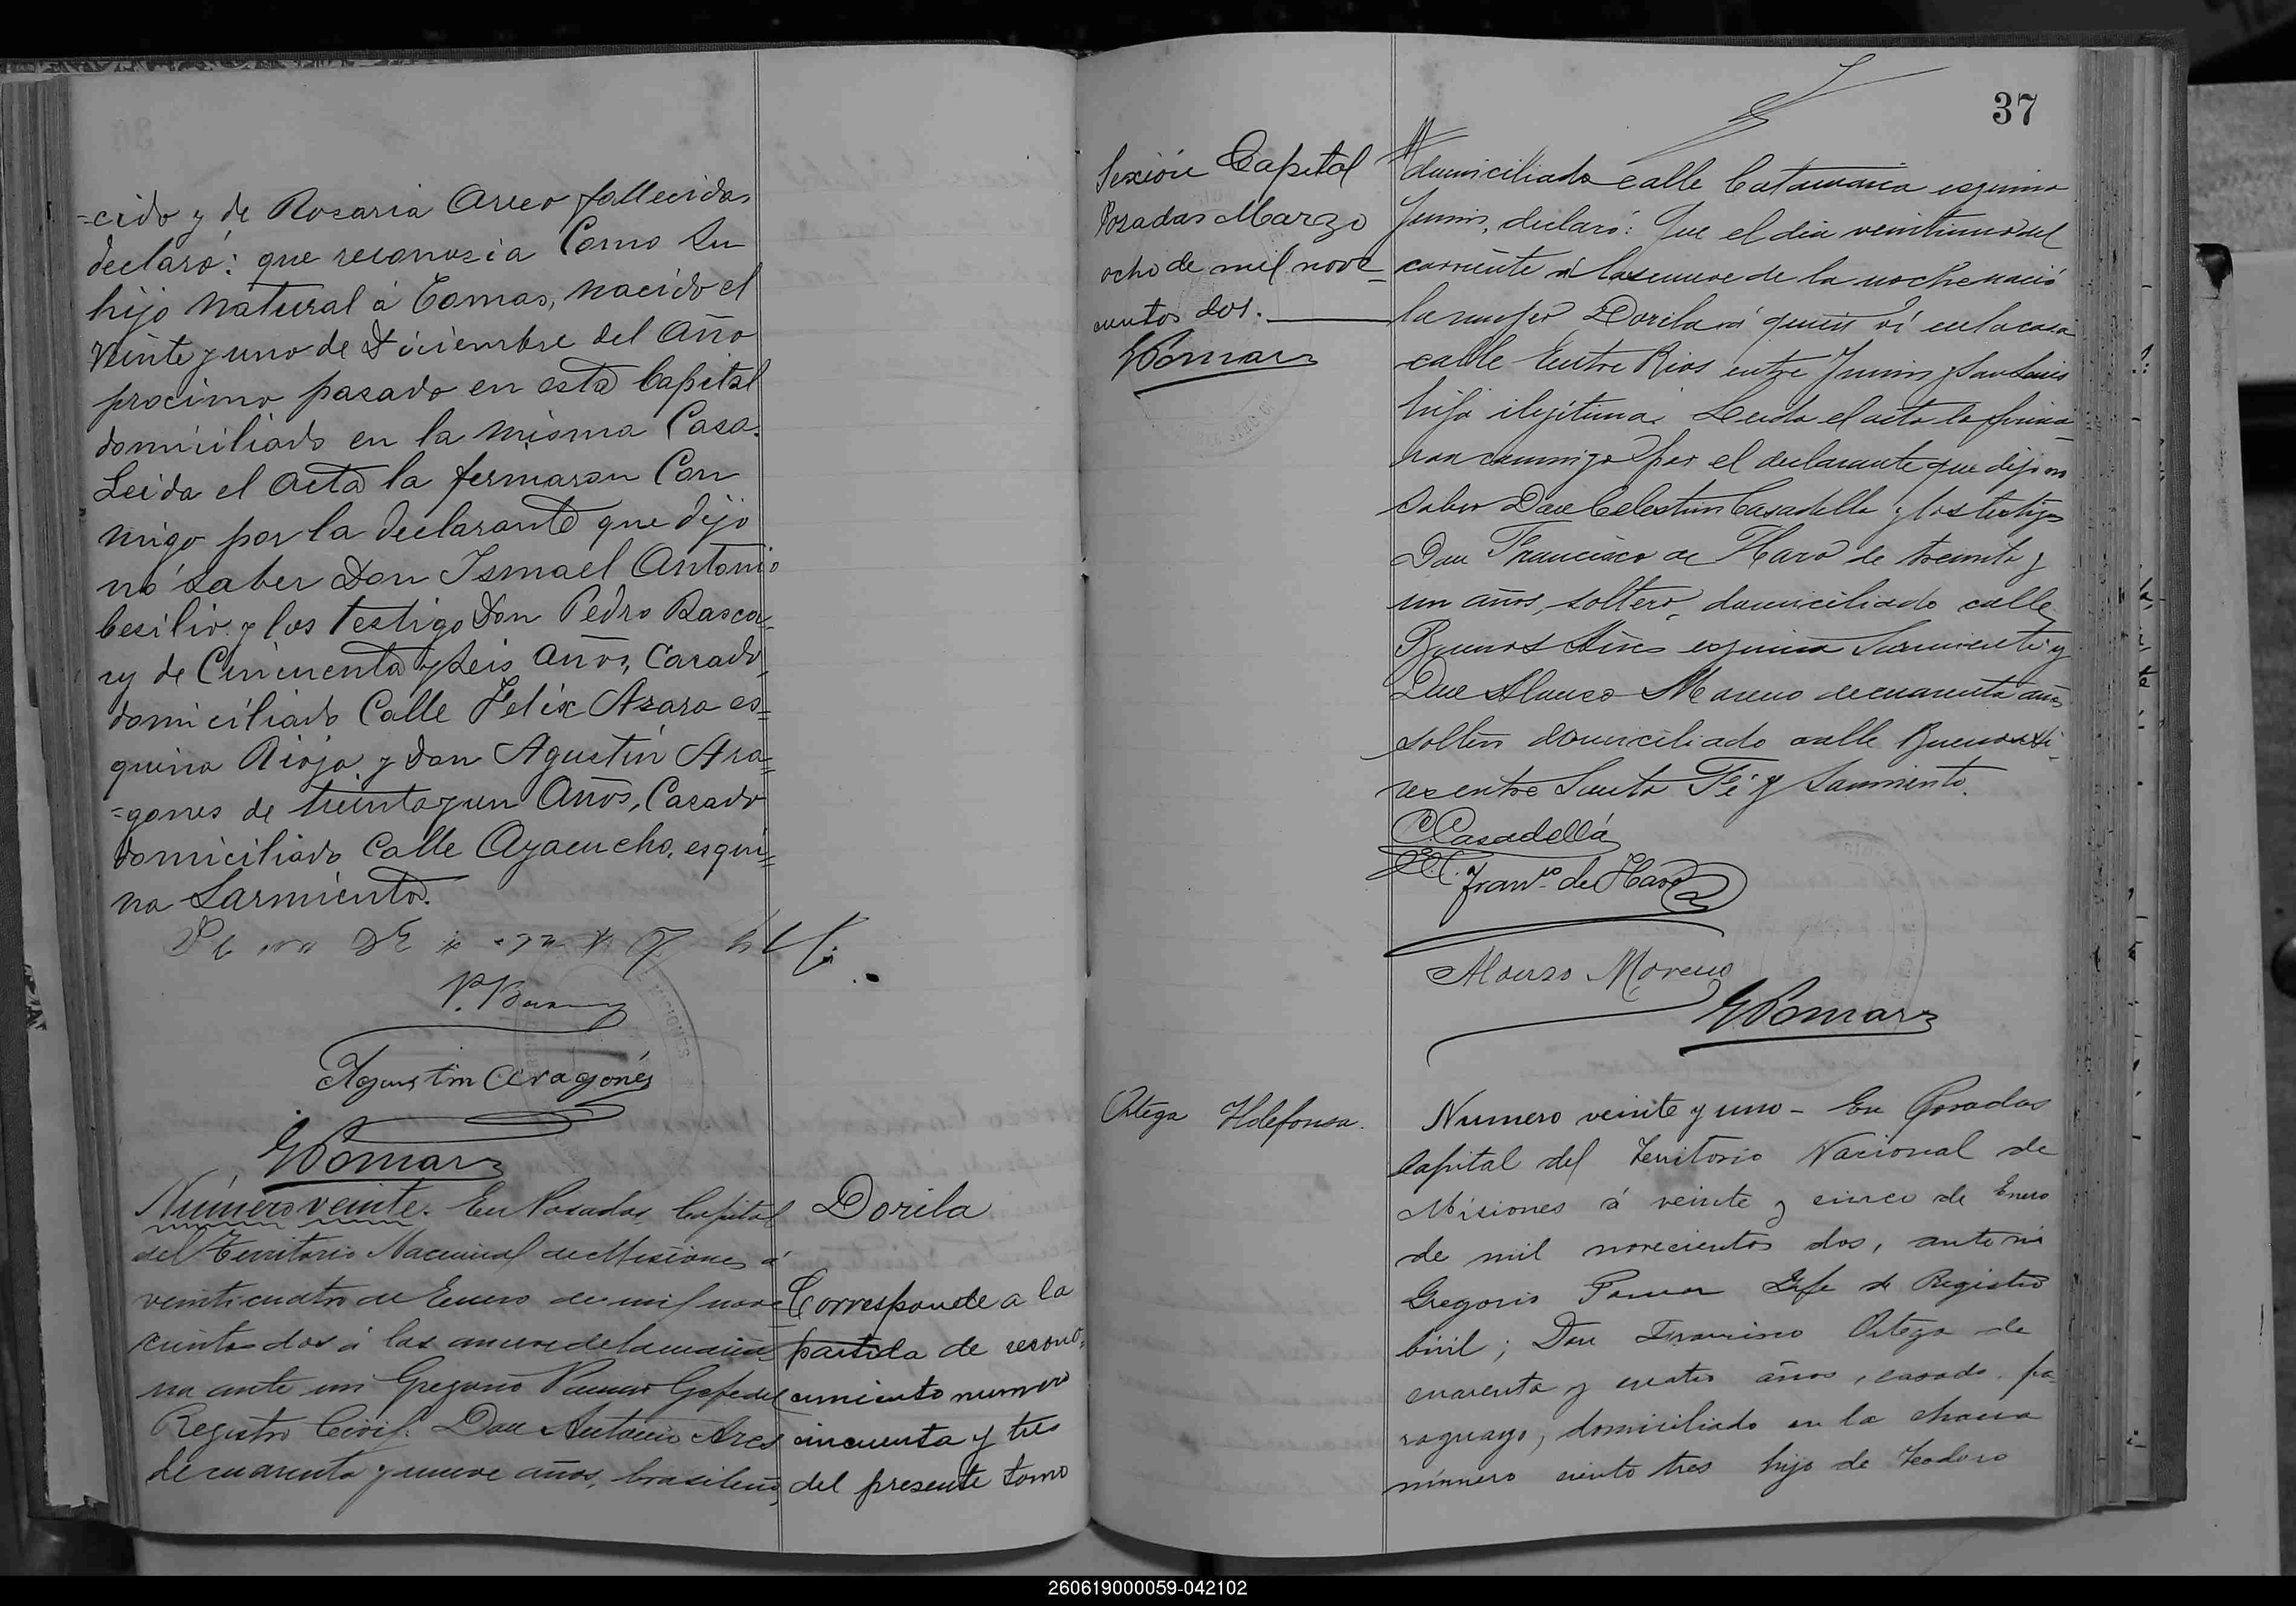 -cido y de Rosaria Arceo fallecidas
declaró: que reconosia Como Su
hijo natural á Tomas, nacido el
Veinte y uno de Diciembre del Año
procimo pasado en esta Capital
domiciliado en la misma Casa.
Leida el acta la fermaron Con
migo por la declarante que dijo
no saber Don Ismael Antonio
Cesilio y los Testigo Don Pedro Basca-
ry de Cincuenta y seis Años, Casado,
domiciliado Calle Felix Azara es=
quina Rioja y Don Agustín Ara=
=gones de treinta y un Años, Casado
domiciliado Calle Ayacucho, esqui=
na Sarmiento.
Agustin Aragonés
GPomar
Número veinte. En Posadas, Capital
del Territorio Nacional de Misiones á
veinticuatro de Enero de mil nove
cientos dos á las nueve de la maña
na ante mi Gregorio Pomar Gefe del
Registro Civil: Don Antonio Ares
de cuarenta y nueve años, brasileño,
Dorila
Corresponde a la
partida de recono-
cimiento numero
cincuenta y tres
del presente tomo
37
Sexión Capital
Posadas Marzo
ocho de mil nove-
cientos dos.
GPomar
domiciliado calle Catamarca esquina
Junin, declaró: Que el dia veintiuno del
corriente á las nueve de la noche nació
la mujer Dorila á quien ví en la casa
calle Entre Rios entre Junin y San Luis
hija ilegítima. Leida el acta la firma-
ron conmigo por el declarante que dijo no
saber Don Celestin Casadella y los testigos
Don Francisco de Haro de treinta y
un años, soltero, domiciliado calle
Buenos Aires esquina Sarmiento y
Don Alonso Moreno de cuarenta años
soltero domiciliado calle Buenos Ai-
res entre Santa Fé y Sarmiento.
C Casadellá
Franco de Haro
Alonso Moreno
GPomar
Ortega Ildefonsa.
Numero veinte y uno - En Posadas
Capital del Territorio Nacional de
Misiones á veinte y cinco de Enero
de mil novecientos dos, ante mi
Gregorio Pomar Gefe de Registro
Civil; Don Francisco Ortega de
cuarenta y cuatro años, casado, pa-
raguayo, domiciliado en la chacra
número ciento tres hijo de Teodoro
260619000059-042102